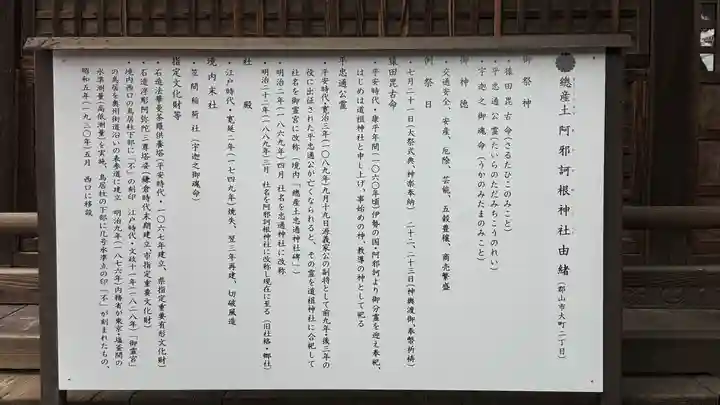 總産土 阿邪訶根神社由緒（郡山市大町二丁目）
御祭神
・猿田毘古命（さるたひこのみこと）
・平忠通公霊（たいらのただみちこうのれい）
・宇迦之御魂命（うかのみたまのみこと）
御神徳
・交通安全、安産、厄除、芸能、五穀豊穣、商売繁盛
例祭日
・七月二十一日（大祭式典、神楽奉納） 二十二、二十三日（神輿渡御、奉幣祈祷）
猿田毘古命
・平安時代・康平年間（一〇六〇年頃）伊勢の国・阿邪訶より御分霊を迎え奉祀、
はじめは道祖神社と申し上げ、事始めの神、教導の神として祀る
平忠通公霊
・平安時代・寛治三年（一〇八九年）九月十九日源義家公の副将として前九年・後三年の
役に出征された平忠通公が亡くなられると、その霊を道祖神社に合祀して
社名を御霊宮に改称（境内「總産土忠通神社碑」）
・明治二年（一八六九年）四月 社名を忠通神社に改称
・明治二十二年（一八八九年）三月 社名を阿邪訶根神社に改称し現在に至る（旧社格・郷社）
社殿
・江戸時代・寛延二年（一七四九年）焼失、翌三年再建、切破風造
境内末社
・笠間稲荷社（宇迦之御魂命）
指定文化財等
・石造法華曼荼羅供養塔（平安時代・一〇六七年建立、県指定重要有形文化財）
・石造浮彫阿弥陀三尊塔婆（鎌倉時代末期建立、市指定重要文化財）
・境内西口の鳥居柱下部に「不」の刻印 江戸時代・文政十一年（一八二八年）「御霊宮」
の鳥居を奥州街道沿いの表参道に建立 明治九年（一八七六年）内務省が東京・塩釜間の
水準測量（高低測量）を実施、鳥居柱の下部に几号水準点の印「不」が刻まれたもの、
昭和五年（一九三〇年）五月 西口に移設